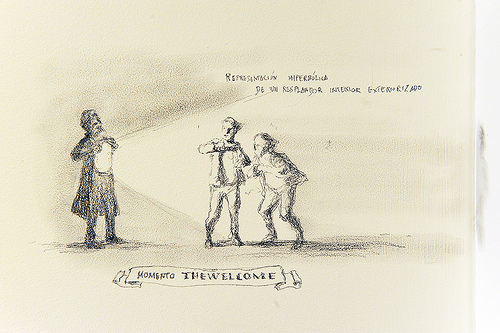 REPRESENTACIÓN HIPERBÓLICA
DE UN RESPLANDOR INTERIOR EXTERIORIZADO
MOMENTO THEWELCOME